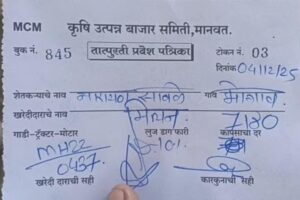 MCM कृषि उत्पन्न बाजार समिती,मानवत.
बुक नं. 845 तात्पुरती प्रवेश पत्रिका टोकन नं. 03
दिनांक 04/12/25
शेतकऱ्याचे नाव नारायण साबळे गाव
खरेदीदाराचे नाव 7120
गाडी-ट्रॅक्टर-मोटार लुज डाग फारी कापसाचा दर
MH22
0437
खरेदी दाराची सही कारकुनाची सही